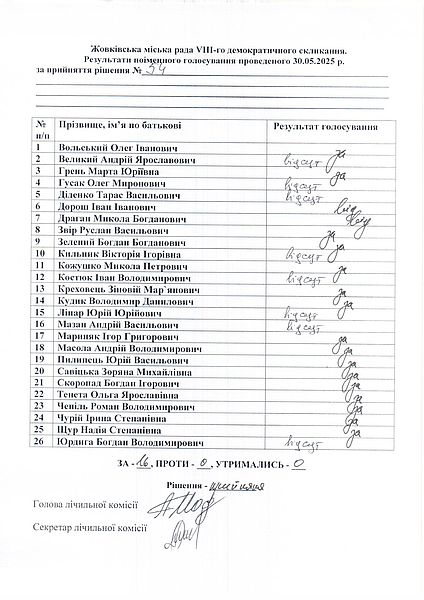 Жовківська міська рада VIII-го демократичного скликання.
Результати поіменного голосування проведеного 30.05.2025 р.
за прийняття рішення № 54
№ п/п Прізвище, ім'я по батькові Результат голосування
1 Вольський Олег Іванович за
2 Великий Андрій Ярославович відсут
3 Грень Марта Юріївна за
4 Гусак Олег Миронович відсут
5 Діденко Тарас Васильович відсут
6 Дорош Іван Іванович
7 Драган Микола Богданович
8 Звір Руслан Васильович за
9 Зелений Богдан Богданович за
10 Кильник Вікторія Ігорівна відсут
11 Кожушко Микола Петрович за
12 Костюк Іван Володимирович відсут
13 Креховець Зіновій Мар`янович за
14 Кудик Володимир Данилович за
15 Ліпар Юрій Юрійович відсут
16 Мазан Андрій Васильович відсут
17 Мариняк Ігор Григорович за
18 Масола Андрій Володимирович за
19 Пилипець Юрій Васильович за
20 Савіцька Зоряна Михайлівна за
21 Скоропад Богдан Ігорович за
22 Тенета Ольга Ярославівна за
23 Чепіль Роман Володимирович за
24 Чурій Ірина Степанівна за
25 Щур Надія Степанівна за
26 Юрдига Богдан Володимирович відсут
ЗА - 16, ПРОТИ - 0, УТРИМАЛИСЬ - 0
Рішення - прийнято
Голова лічильної комісії
Секретар лічильної комісії